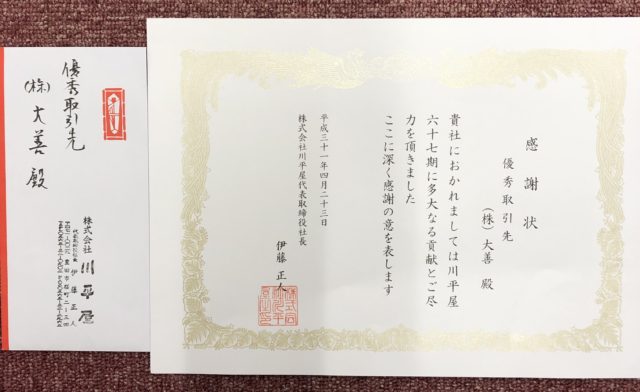 感謝状
優秀取引先
(株)大善 殿
貴社におかれましては川平屋
六十七期に多大なる貢献とご尽
力を頂きました
ここに深く感謝の意を表します
平成三十一年四月二十三日
株式会社川平屋代表取締役社長
伊藤正人
優秀取引先
(株)大善殿
株式会社 川平屋
代表取締役社長 伊藤正人